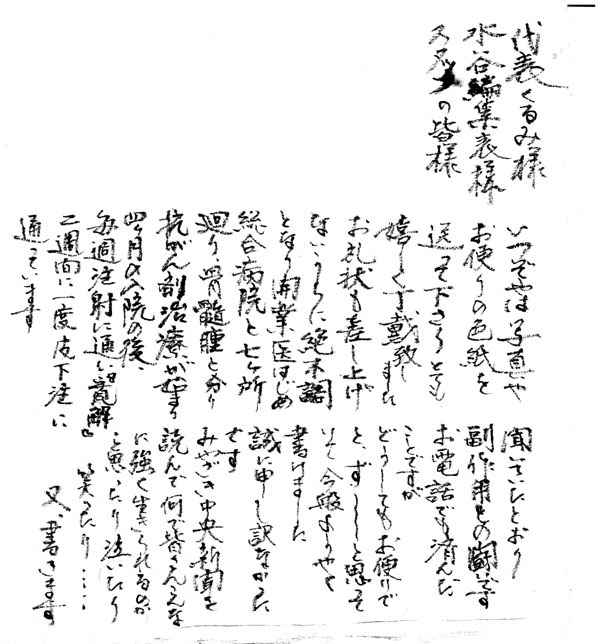 代表くるみ様
水谷編集長様
スタッフの皆様
いつぞやは写真や
お便りの色紙を
送って下さりとても
嬉しく丁戴致しました
お礼状も差し上げ
ないうちに絶不調
となり開業医はじめ
総合病院と七ヶ所
廻り骨髄腫と分り
抗がん剤治療が始まり
四ヶ月の入院の後
毎週注射に通い『寛解』
二週間に一度皮下注に
通っています
聞いていたとおり
副作用との闘いです
お電話でも済んだ
ことですが
どうしてもお便りで
と、ずーっと思って
いて今般ようやく
書けました
誠に申し訳なかった
です
みやざき中央新聞を
読んで何で皆さんこんな
に強く生きられるのか
と思ったり泣いたり
笑ったり・・・・
又、書きます